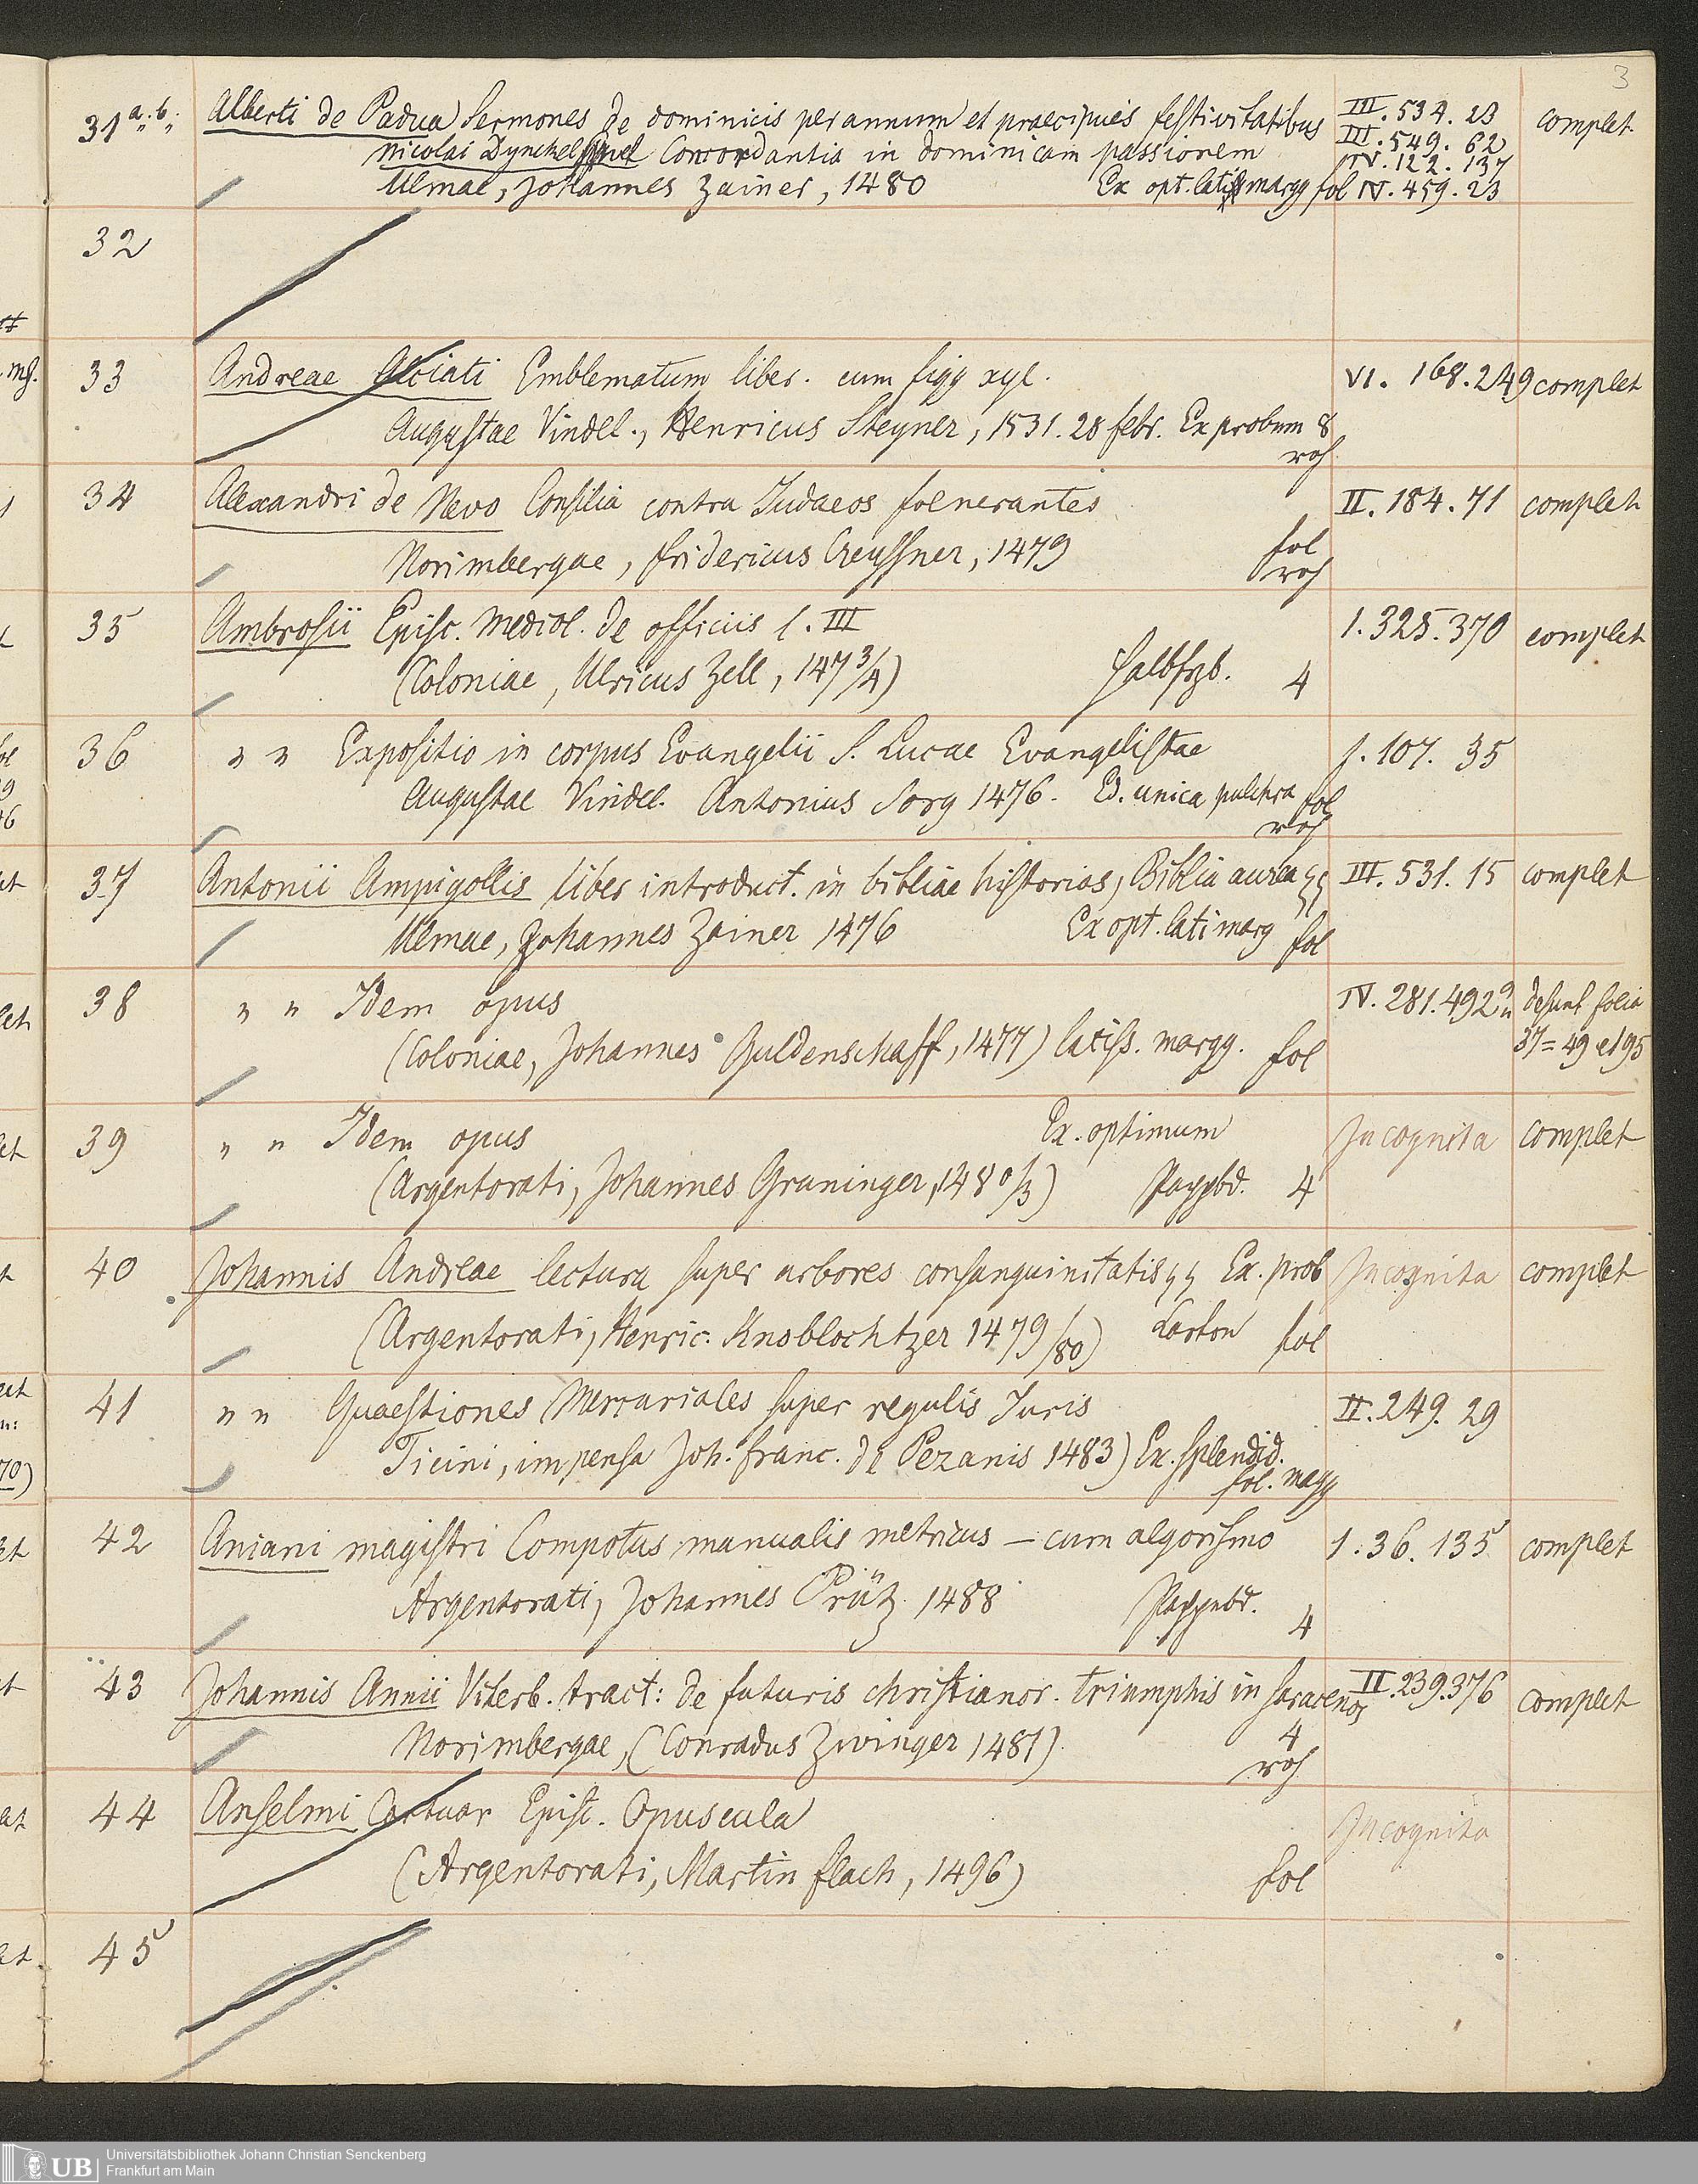 3
31 a. b. Alberti de Padua Sermones de dominicis per annum et praecipuis festivitatibus III. 534. 23 complet
Nicolai Dynckelspuel Concordantia in dominicam passionem III. 549. 62
IV. 122. 137
Ulmae, Johannes Zainer, 1480 Ex opt. latiss margg fol IV. 459. 23
32
33 Andreae Alciati Emblematum liber. cum figg xyl. VI. 168. 249 complet
Augustae Vindel., Henricus Steyner, 1531. 28 febr. Ex probum 8
roh
34 Alexandri de Nevo Consilia contra Judaeos foenerantes II. 184. 71 complet
Norimbergae, Fridericus Creussner, 1479 fol
roh
35 Ambrosii Episc. Mediol. de officiis l. III 1. 325. 370 complet
(Coloniae, Ulricus Zell, 147 3/4) Halbfrzb. 4
36 " " Expositio in corpus Evangelii S. Lucae Evangelistae 1. 107. 35
Augustae Vindel. Antonius Sorg 1476. Ed. unica pulchra fol
roh
37 Antonii Ampigollis liber introduct. in bibliae historias, Biblia aurea III. 531. 15 complet
Ulmae, Johannes Zainer 1476 Ex opt. lati marg fol
38 " " Idem opus IV. 281. 492 desunt folia
(Coloniae, Johannes Guldenschaff, 1477) latiss. margg. fol 37=49 et 95
39 " " Idem opus Ex. optimum Incognita complet
(Argentorati, Johannes Gruninger, 148 0/3) Pappbd. 4
40 Johannis Andreae lectura super arbores consanguinitatis Ex. prob Incognita complet
(Argentorati, Henric. Knoblochtzer 1479/80) Carton fol
41 " " Quaestiones Mercuriales super regulis Juris II. 249. 29
Ticini, impensa Joh. franc. de Pezanis 1483) Ex. splendid.
fol. margg
42 Aniani magistri Compotus manualis metricus – cum algorismo 1. 36. 135 complet
Argentorati, Johannes Prüz 1488 Pappbd. 4
43 Johannis Annii Viterb. tract: de futuris christianor. triumphis in saracenos II. 239. 376 complet
Norimbergae, (Conradus Zwinger 1481) 4
roh
44 Anselmi Cantuar Episc. Opuscula Incognita
(Argentorati, Martin flach, 1496) fol
45
UB Universitätsbibliothek Johann Christian Senckenberg
Frankfurt am Main